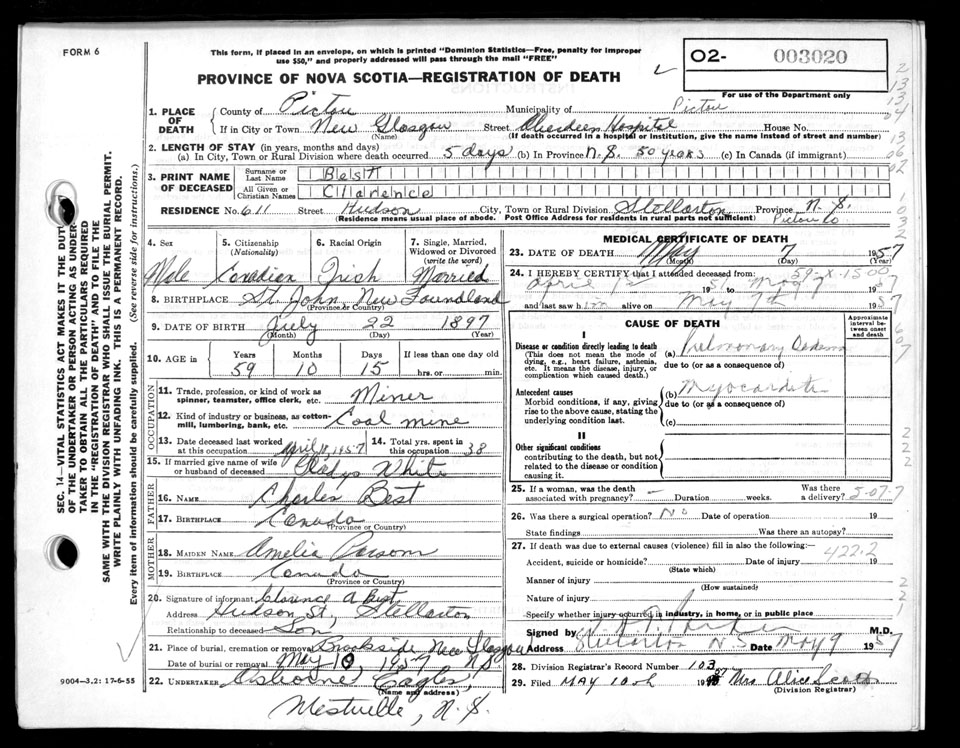 FORM 6
This form, if placed in an envelope, on which is printed "Dominion Statistics—Free, penalty for improper
use $50," and properly addressed will pass through the mail "FREE"
PROVINCE OF NOVA SCOTIA—REGISTRATION OF DEATH
O2- 003020
For use of the Department only
1. PLACE OF DEATH
County of Pictou Municipality of Pictou
If in City or Town New Glasgow Street Aberdeen Hospital House No.
(Name) (If death occurred in a hospital or institution, give the name instead of street and number)
2. LENGTH OF STAY (in years, months and days)
(a) In City, Town or Rural Division where death occurred 5 days (b) In Province N.S. 50 years (c) In Canada (if immigrant)
3. PRINT NAME OF DECEASED
Surname or Last Name Best
All Given or Christian Names Clarence
RESIDENCE No. 611 Street Hudson City, Town or Rural Division Stellarton Province N.S.
(Residence means usual place of abode. Post Office Address for residents in rural parts not sufficient) Pictou Co
4. Sex Male
5. Citizenship (Nationality) Canadian
6. Racial Origin Irish
7. Single, Married, Widowed or Divorced (write the word) Married
8. BIRTHPLACE St. John, New Foundland
(Province or Country)
9. DATE OF BIRTH July 22 1897
(Month) (Day) (Year)
10. AGE in Years 59 Months 10 Days 15 If less than one day old hrs. or min.
OCCUPATION
11. Trade, profession, or kind of work as spinner, teamster, office clerk, etc. Miner
12. Kind of industry or business, as cotton-mill, lumbering, bank, etc. Coal mine
13. Date deceased last worked at this occupation April 11, 1957
14. Total yrs. spent in this occupation 38
15. If married give name of wife or husband of deceased Gladys White
FATHER
16. NAME Charles Best
17. BIRTHPLACE Canada
(Province or Country)
MOTHER
18. MAIDEN NAME Amelia Parsom
19. BIRTHPLACE Canada
(Province or Country)
20. Signature of informant Clarence A Best
Address Hudson St, Stellarton
Relationship to deceased Son
21. Place of burial, cremation or removal Brookside New Glasgow
Date of burial or removal May 10, 1957 N.S.
22. UNDERTAKER Osborne Eagles,
(Name and address)
Westville, N.S.
9004-3.2: 17-6-55
MEDICAL CERTIFICATE OF DEATH
23. DATE OF DEATH May 7 1957
(Month) (Day) (Year)
24. I HEREBY CERTIFY that I attended deceased from: 59-X-1500
April 1st 1951 to May 7 1957
and last saw h im alive on May 7th 1957
CAUSE OF DEATH
Approximate interval between onset and death
I
Disease or condition directly leading to death
(This does not mean the mode of dying, e.g., heart failure, asthenia, etc. It means the disease, injury, or complication which caused death.)
(a) Pulmonary Oedema
due to (or as a consequence of)
Antecedent causes
Morbid conditions, if any, giving rise to the above cause, stating the underlying condition last.
(b) Myocarditis
due to (or as a consequence of)
(c)
II
Other significant conditions
contributing to the death, but not related to the disease or condition causing it.
25. If a woman, was the death associated with pregnancy? — Duration weeks. Was there a delivery? 5-07-7
26. Was there a surgical operation? No Date of operation 19
State findings Was there an autopsy?
27. If death was due to external causes (violence) fill in also the following:— 422.2
Accident, suicide or homicide? Date of injury 19
(State which)
Manner of injury
(How sustained)
Nature of injury
Specify whether injury occurred in industry, in home, or in public place
Signed by M.D.
Stellarton N.S. Date May 9 1957
28. Division Registrar's Record Number 103
29. Filed May 10th 1957 Mrs Alice Scott
(Division Registrar)
SEC. 14—VITAL STATISTICS ACT MAKES IT THE DUTY
OF THE UNDERTAKER OR PERSON ACTING AS UNDER-
TAKER TO OBTAIN ALL THE PARTICULARS REQUIRED
IN THE "REGISTRATION OF DEATH" AND TO FILE THE
SAME WITH THE DIVISION REGISTRAR WHO SHALL ISSUE THE BURIAL PERMIT.
WRITE PLAINLY WITH UNFADING INK. THIS IS A PERMANENT RECORD.
Every item of information should be carefully supplied. (See reverse side for instructions.)